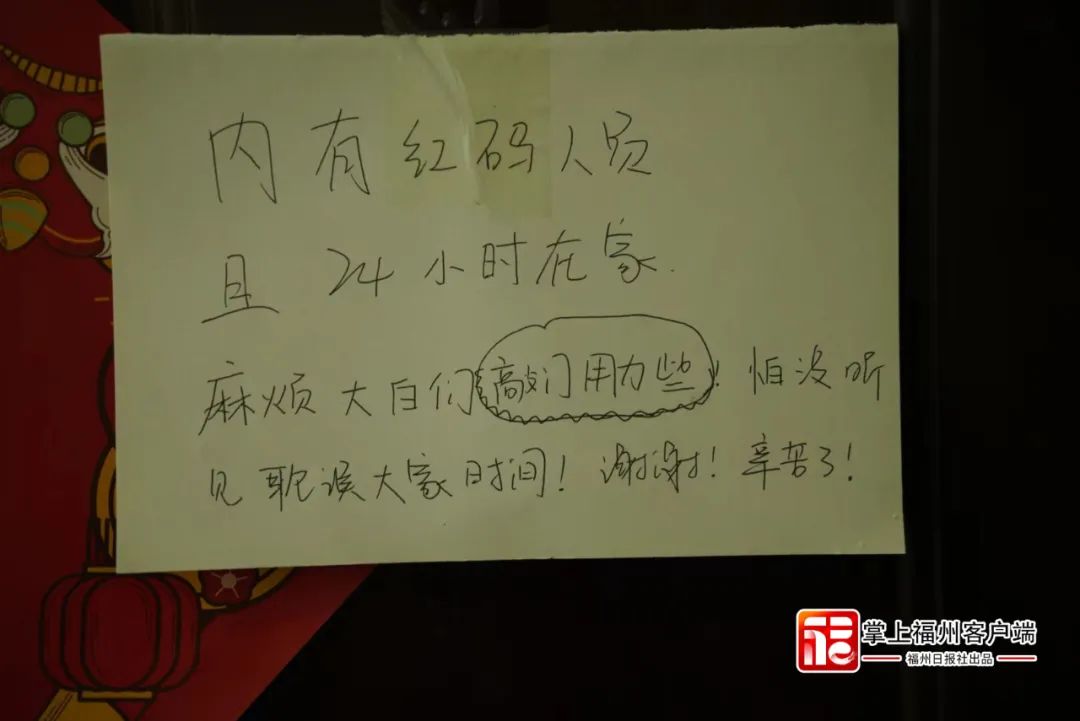 内有红码人员
且24小时在家.
麻烦大白们敲门用力些!怕没听
见耽误大家时间!谢谢!辛苦了!
掌上福州客户端
福州日报社出品